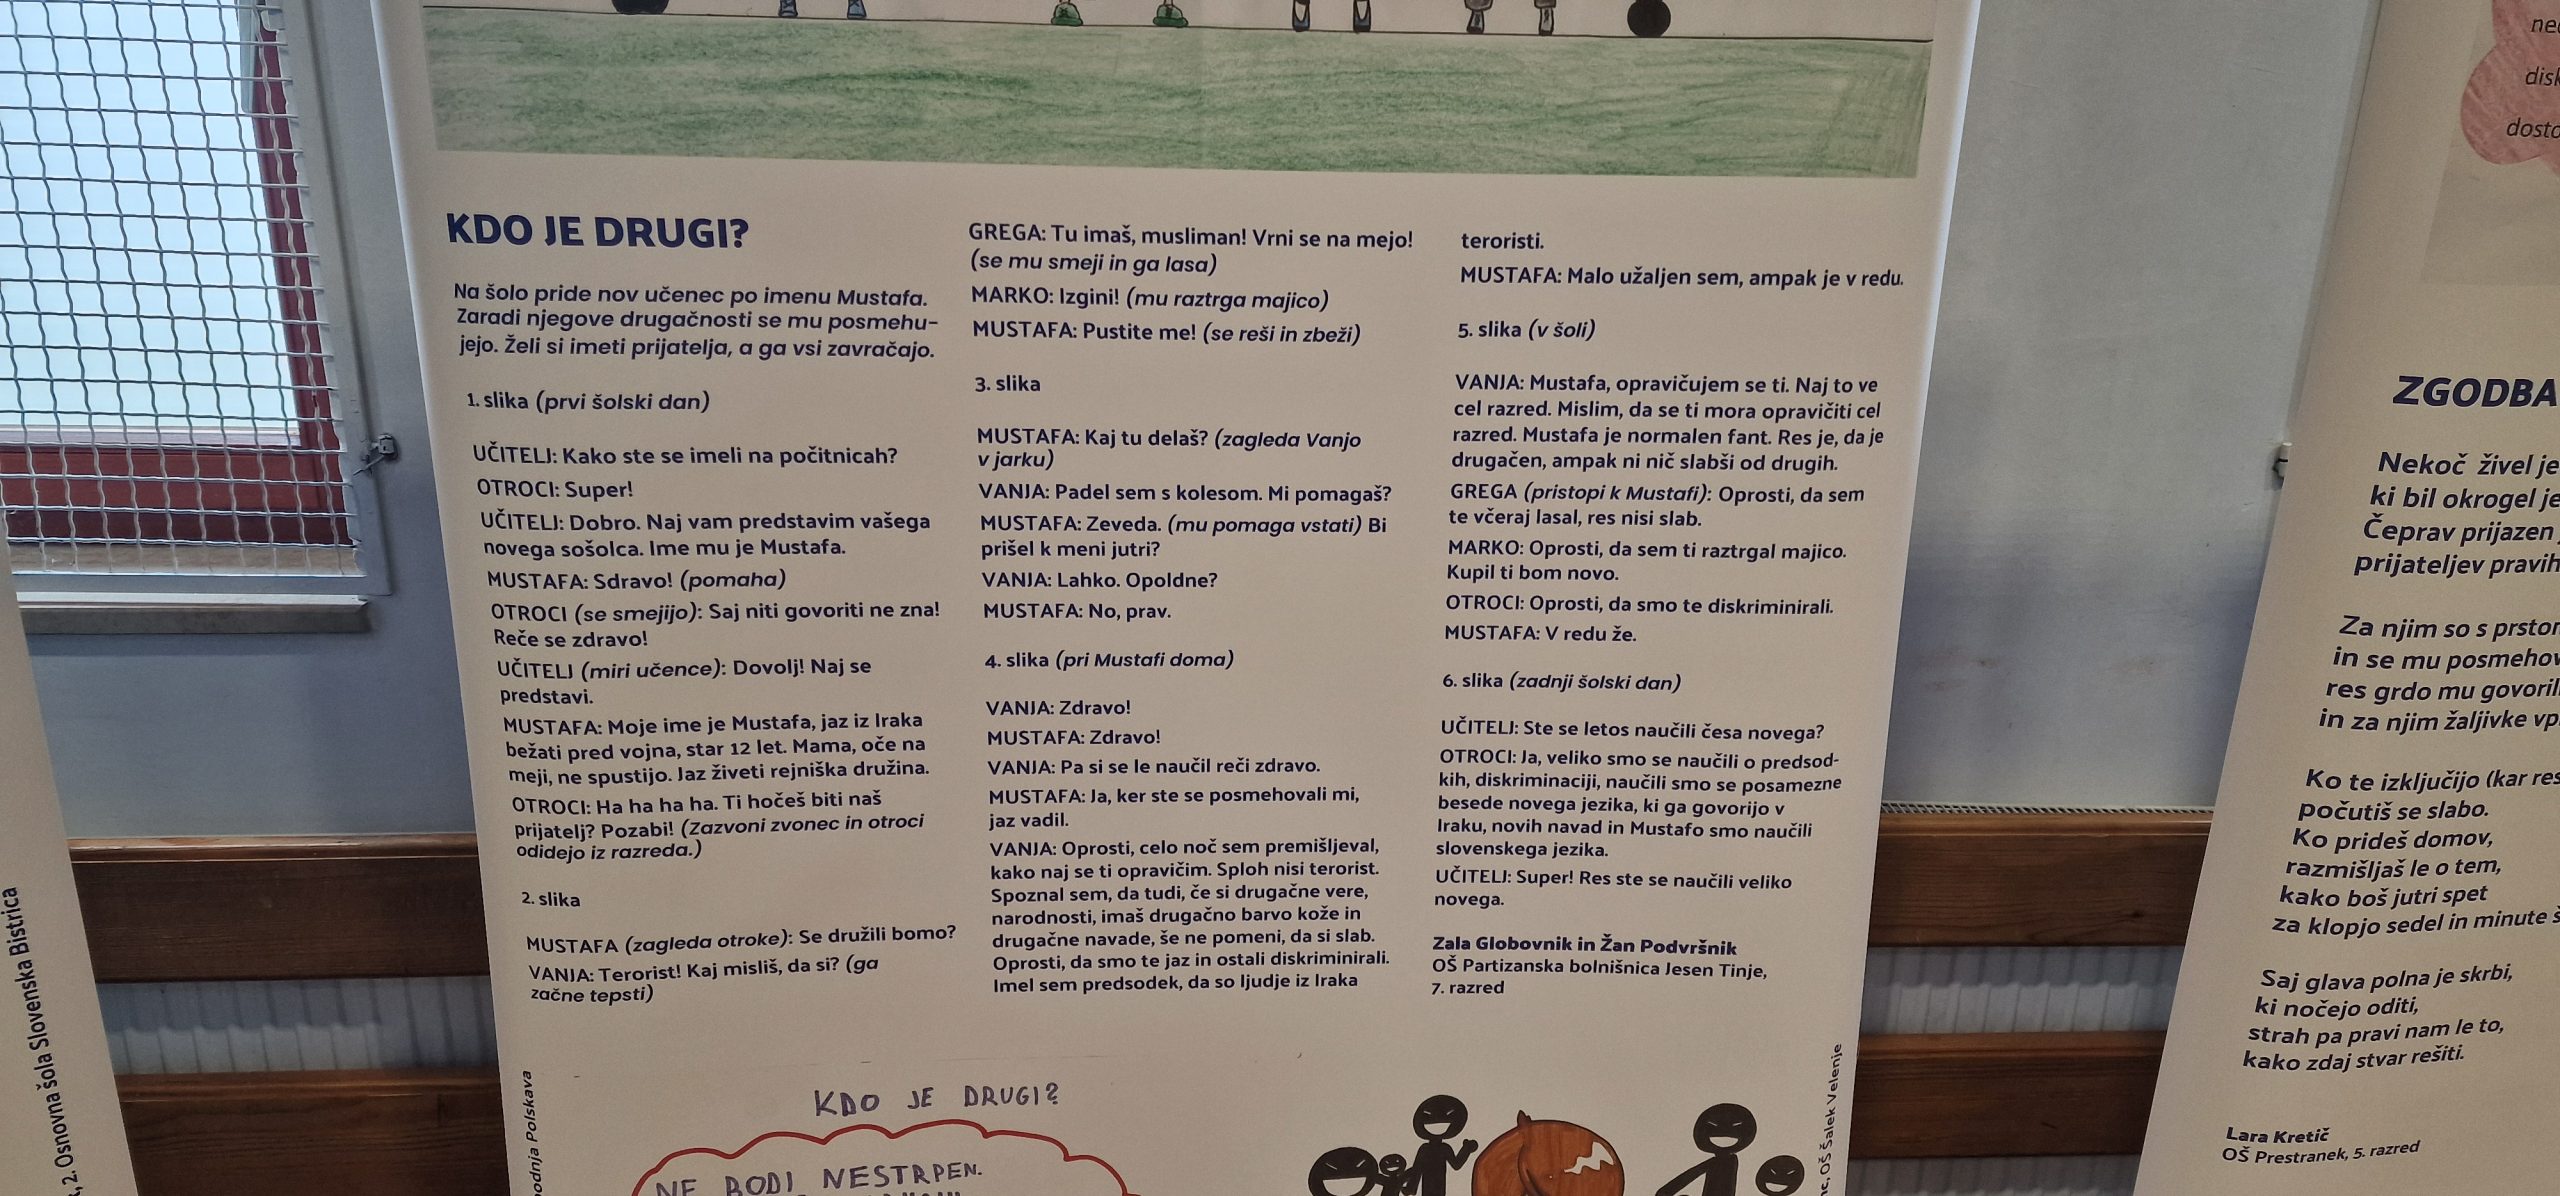 KDO JE DRUGI?
Na šolo pride nov učenec po imenu Mustafa.
Zaradi njegove drugačnosti se mu posmehu-
jejo. Želi si imeti prijatelja, a ga vsi zavračajo.
1. slika (prvi šolski dan)
UČITELJ: Kako ste se imeli na počitnicah?
OTROCI: Super!
UČITELJ: Dobro. Naj vam predstavim vašega
novega sošolca. Ime mu je Mustafa.
MUSTAFA: Sdravo! (pomaha)
OTROCI (se smejijo): Saj niti govoriti ne zna!
Reče se zdravo!
UČITELJ (miri učence): Dovolj! Naj se
predstavi.
MUSTAFA: Moje ime je Mustafa, jaz iz Iraka
bežati pred vojna, star 12 let. Mama, oče na
meji, ne spustijo. Jaz živeti rejniška družina.
OTROCI: Ha ha ha ha. Ti hočeš biti naš
prijatelj? Pozabi! (Zazvoni zvonec in otroci
odidejo iz razreda.)
2. slika
MUSTAFA (zagleda otroke): Se družili bomo?
VANJA: Terorist! Kaj misliš, da si? (ga
začne tepsti)
GREGA: Tu imaš, musliman! Vrni se na mejo!
(se mu smeji in ga lasa)
MARKO: Izgini! (mu raztrga majico)
MUSTAFA: Pustite me! (se reši in zbeži)
3. slika
MUSTAFA: Kaj tu delaš? (zagleda Vanjo
v jarku)
VANJA: Padel sem s kolesom. Mi pomagaš?
MUSTAFA: Zeveda. (mu pomaga vstati) Bi
prišel k meni jutri?
VANJA: Lahko. Opoldne?
MUSTAFA: No, prav.
4. slika (pri Mustafi doma)
VANJA: Zdravo!
MUSTAFA: Zdravo!
VANJA: Pa si se le naučil reči zdravo.
MUSTAFA: Ja, ker ste se posmehovali mi,
jaz vadil.
VANJA: Oprosti, celo noč sem premišljeval,
kako naj se ti opravičim. Sploh nisi terorist.
Spoznal sem, da tudi, če si drugačne vere,
narodnosti, imaš drugačno barvo kože in
drugačne navade, še ne pomeni, da si slab.
Oprosti, da smo te jaz in ostali diskriminirali.
Imel sem predsodek, da so ljudje iz Iraka
teroristi.
MUSTAFA: Malo užaljen sem, ampak je v redu.
5. slika (v šoli)
VANJA: Mustafa, opravičujem se ti. Naj to ve
cel razred. Mislim, da se ti mora opravičiti cel
razred. Mustafa je normalen fant. Res je, da je
drugačen, ampak ni nič slabši od drugih.
GREGA (pristopi k Mustafi): Oprosti, da sem
te včeraj lasal, res nisi slab.
MARKO: Oprosti, da sem ti raztrgal majico.
Kupil ti bom novo.
OTROCI: Oprosti, da smo te diskriminirali.
MUSTAFA: V redu že.
6. slika (zadnji šolski dan)
UČITELJ: Ste se letos naučili česa novega?
OTROCI: Ja, veliko smo se naučili o predsod-
kih, diskriminaciji, naučili smo se posamezne
besede novega jezika, ki ga govorijo v
Iraku, novih navad in Mustafo smo naučili
slovenskega jezika.
UČITELJ: Super! Res ste se naučili veliko
novega.
Zala Globovnik in Žan Podvršnik
OŠ Partizanska bolnišnica Jesen Tinje,
7. razred
KDO JE DRUGI?
NE BODI NESTRPEN.
Polskava
OŠ Šalek Velenje
2. Osnovna šola Slovenska Bistrica
ZGODBA
Nekoč živel je
ki bil okrogel je
Čeprav prijazen
prijateljev pravih
Za njim so s
in se mu
res grdo mu
in za njim žaljivke
Ko te izključijo (kar
počutiš se slabo.
Ko prideš domov,
razmišljaš le o tem,
kako boš jutri spet
za klopjo sedel in minute
Saj glava polna je skrbi,
ki nočejo oditi,
strah pa pravi nam le to,
kako zdaj stvar rešiti.
Lara Kretič
OŠ Prestranek, 5. razred